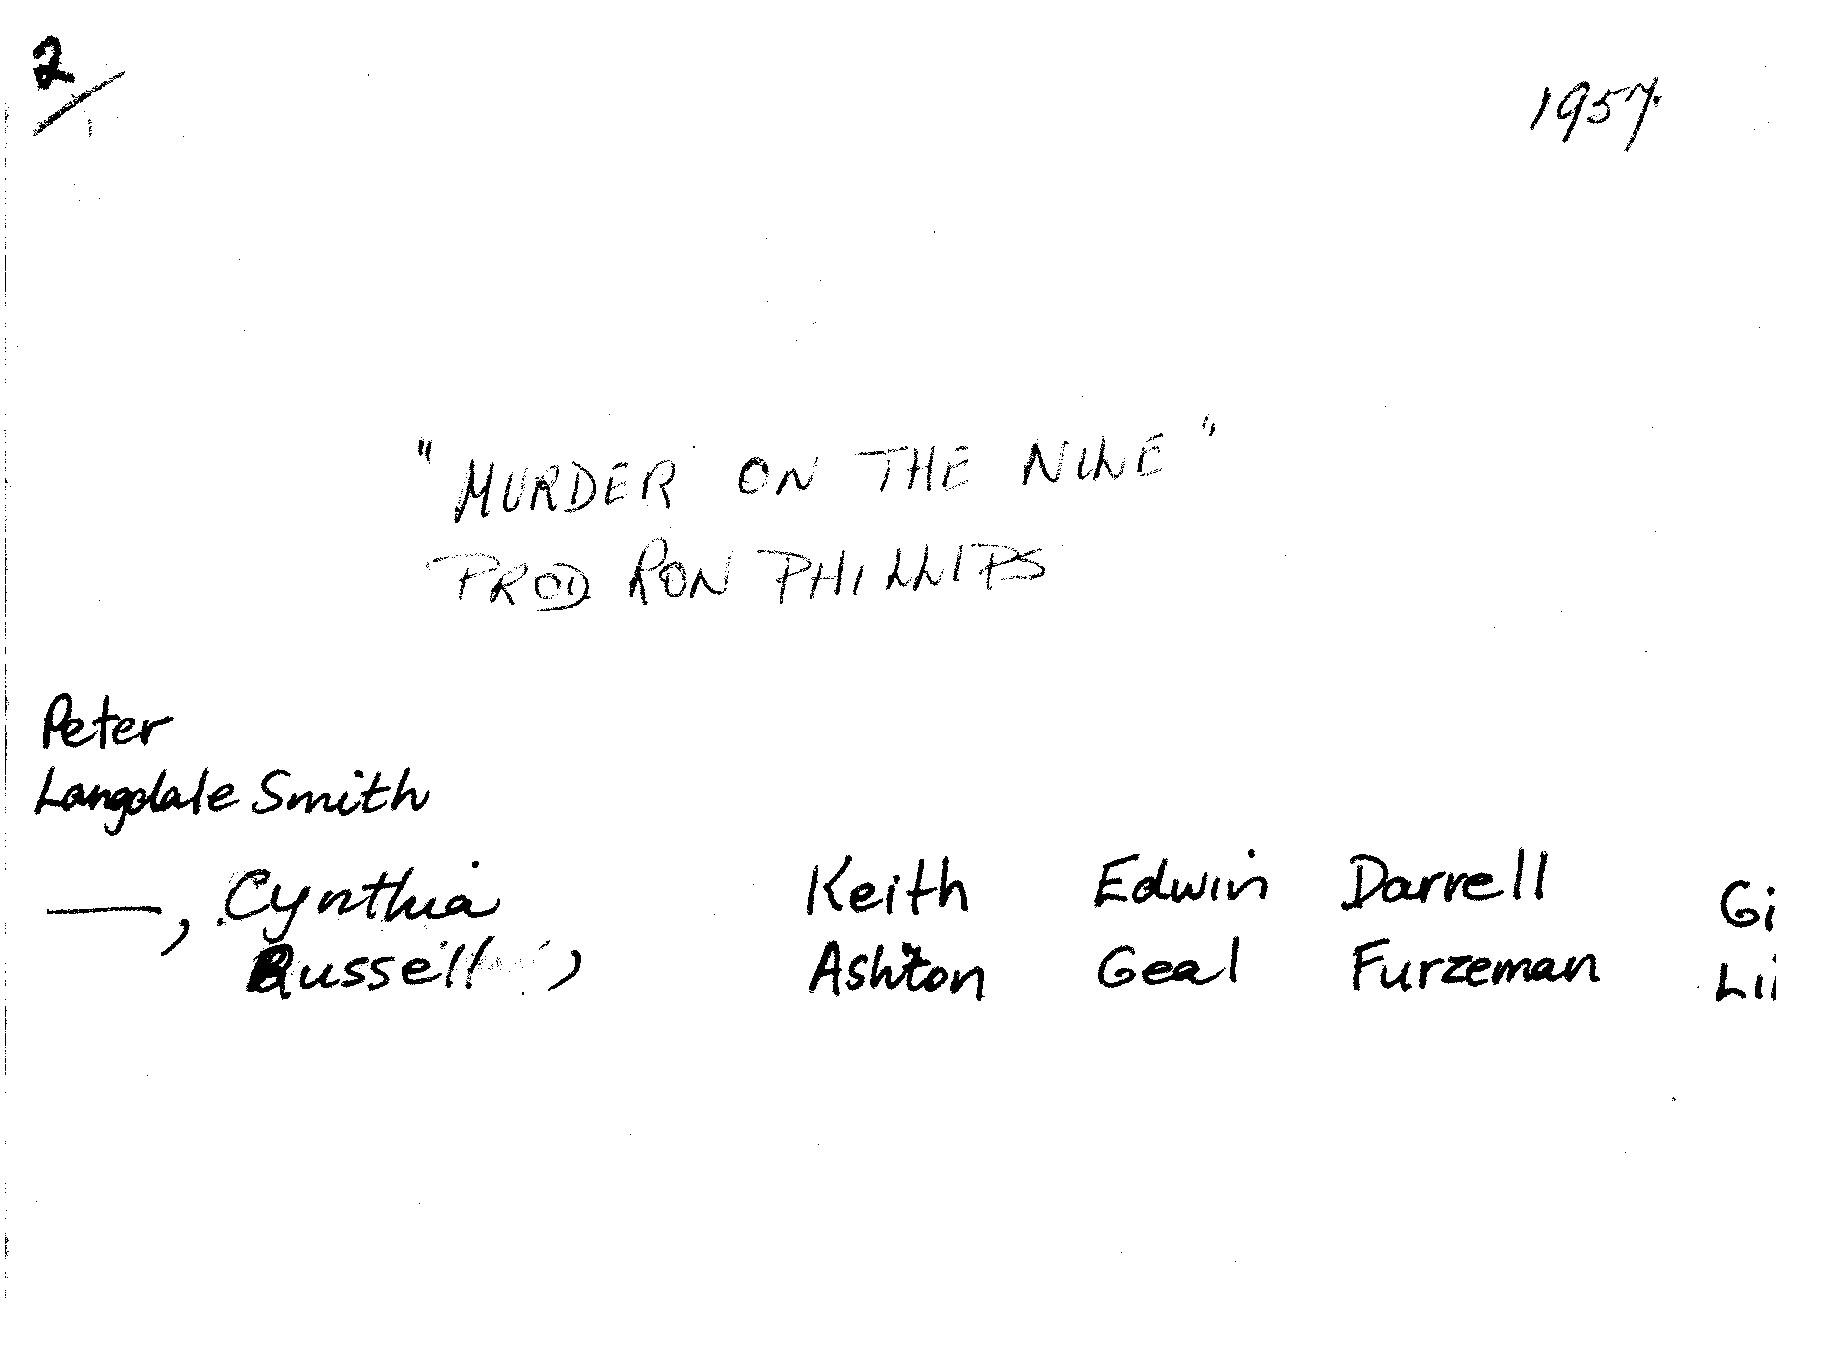 2/
1957.
"MURDER ON THE NILE"
PROD RON PHILLIPS
Peter
Langdale Smith
—, Cynthia Keith Edwin Darrell Gi
Russell , Ashton Geal Furzeman